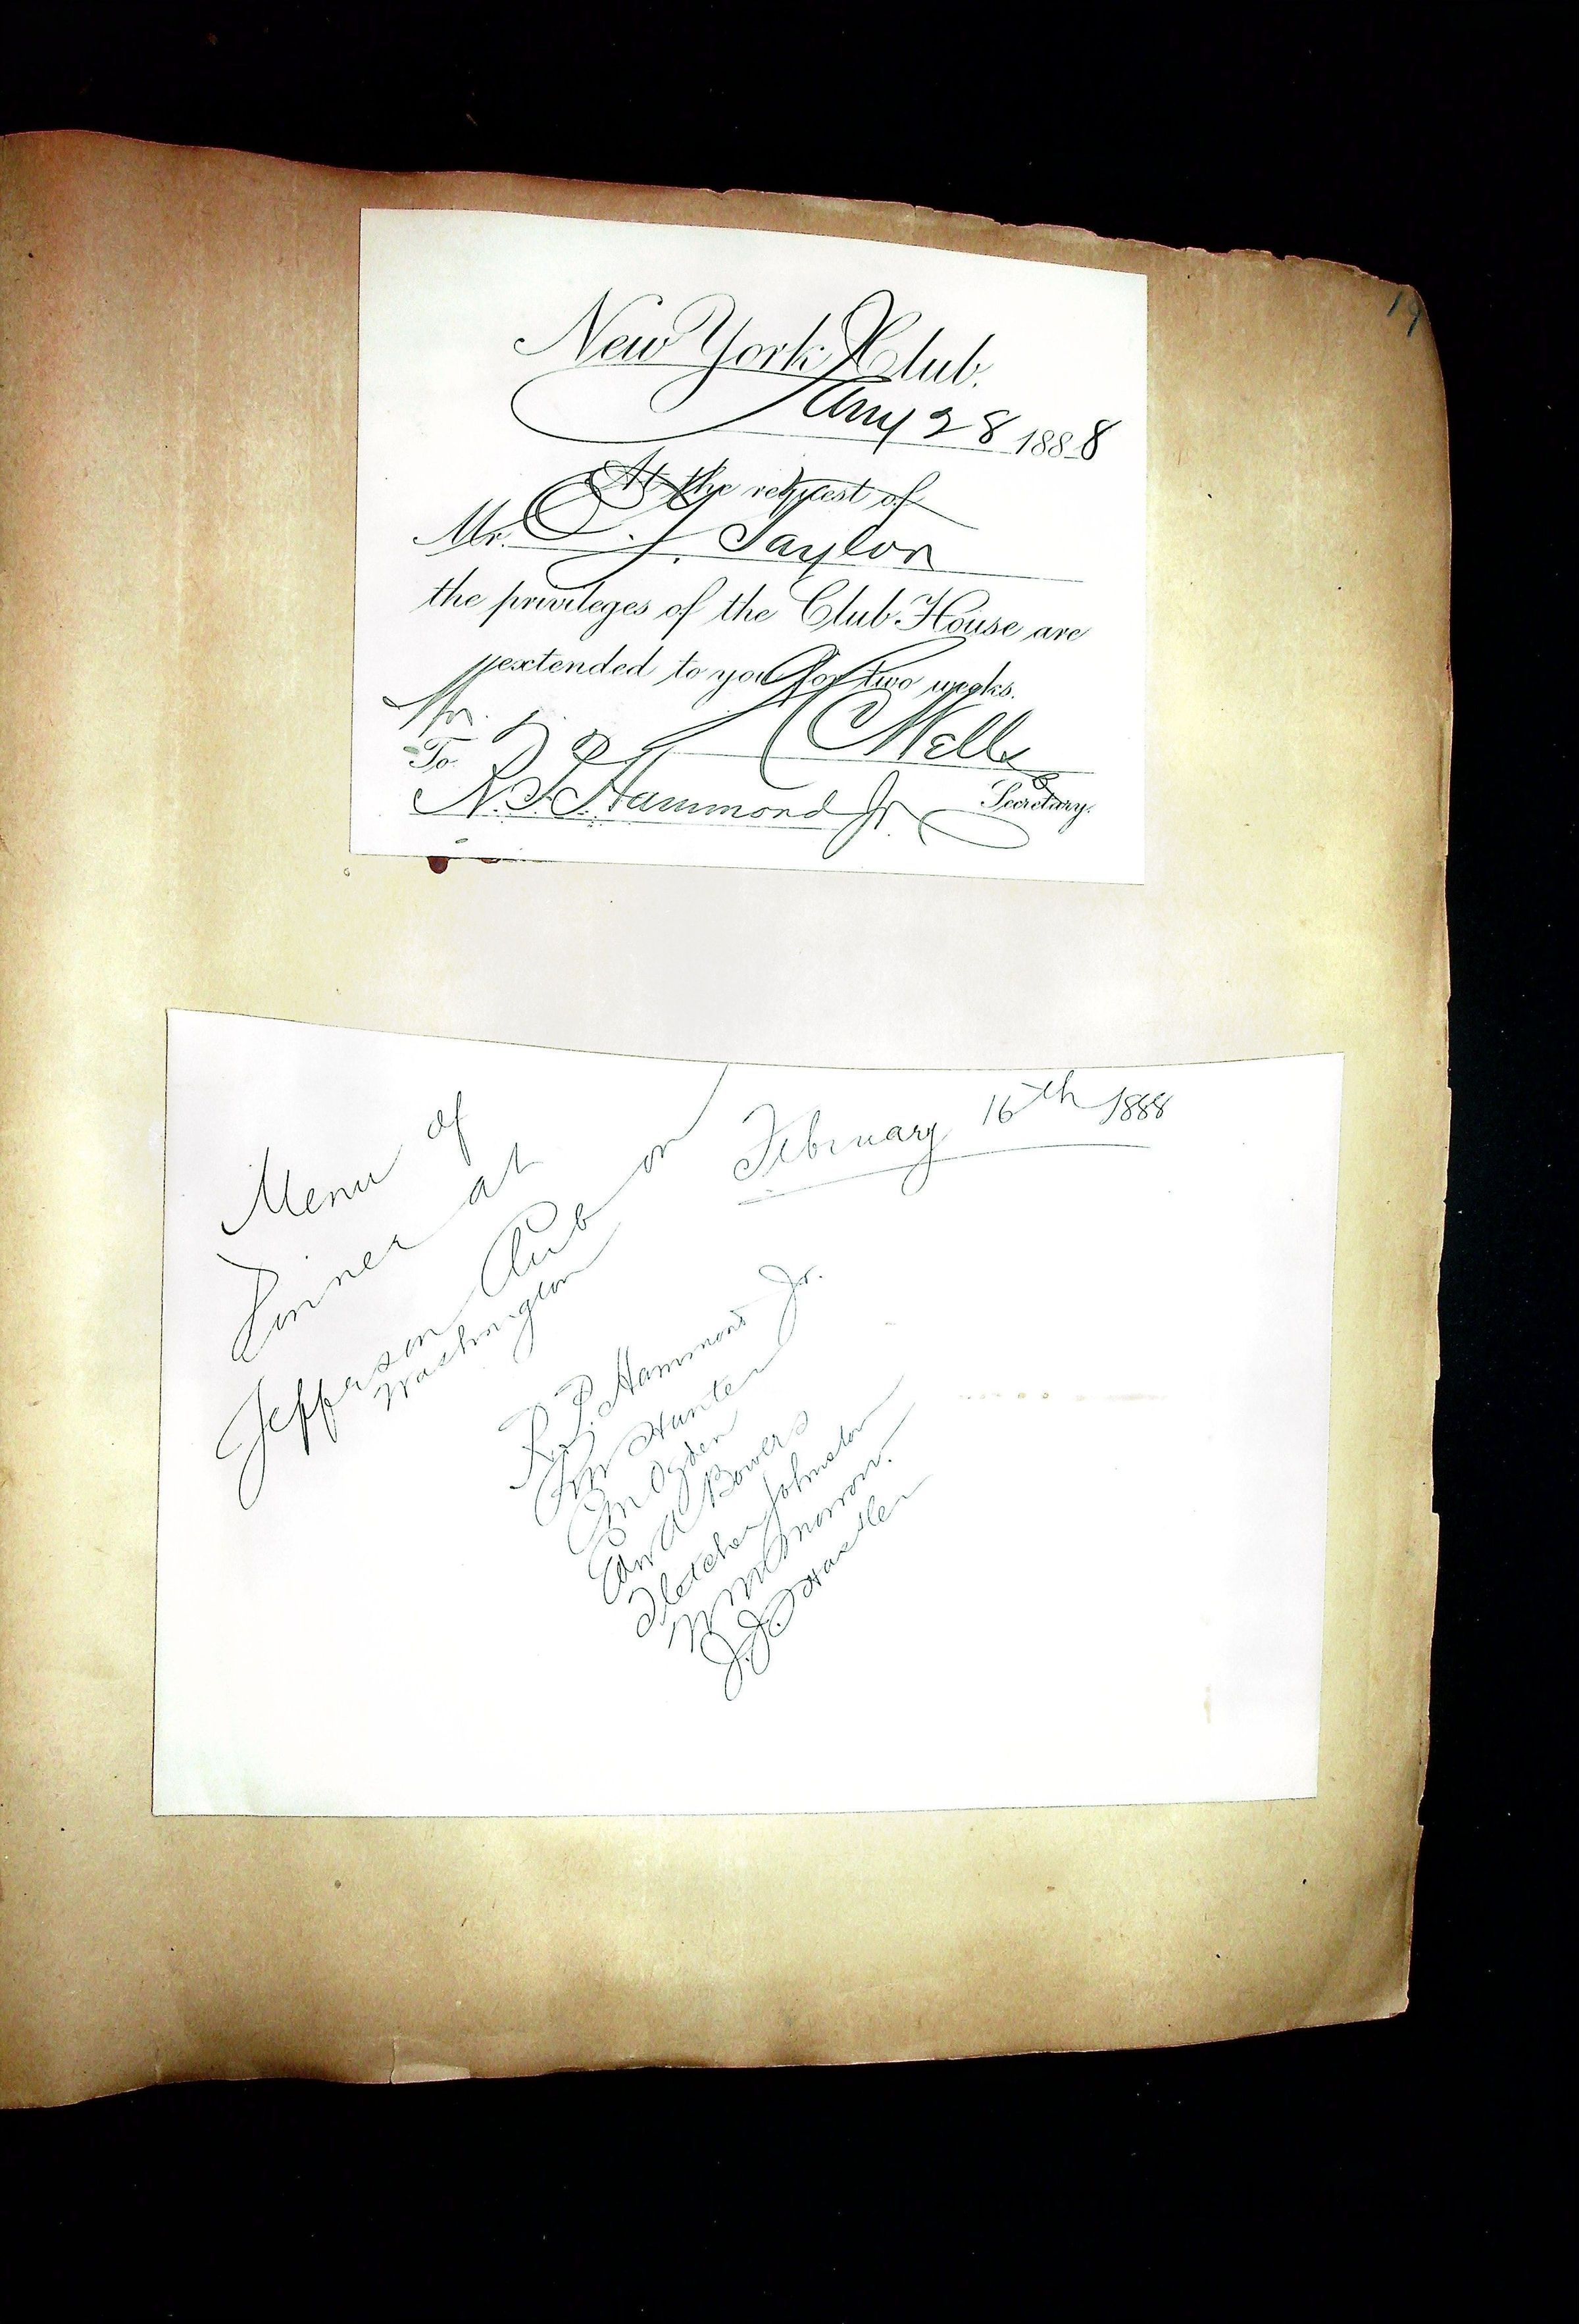 19
New York Club.
Jany 28 1888
At the request of
Mr. E. J. Taylor
the privileges of the Club House are
extended to you for two weeks.
Mr.
To
R. P. Hammond Jr.
Secretary.
Menu of
Dinner at
Jefferson Club on
Washington
February 16th 1888
R. P. Hammond Jr.
Hunter
Ogden
Edw A Bowers
Fletcher Johnston
W M Morrow.